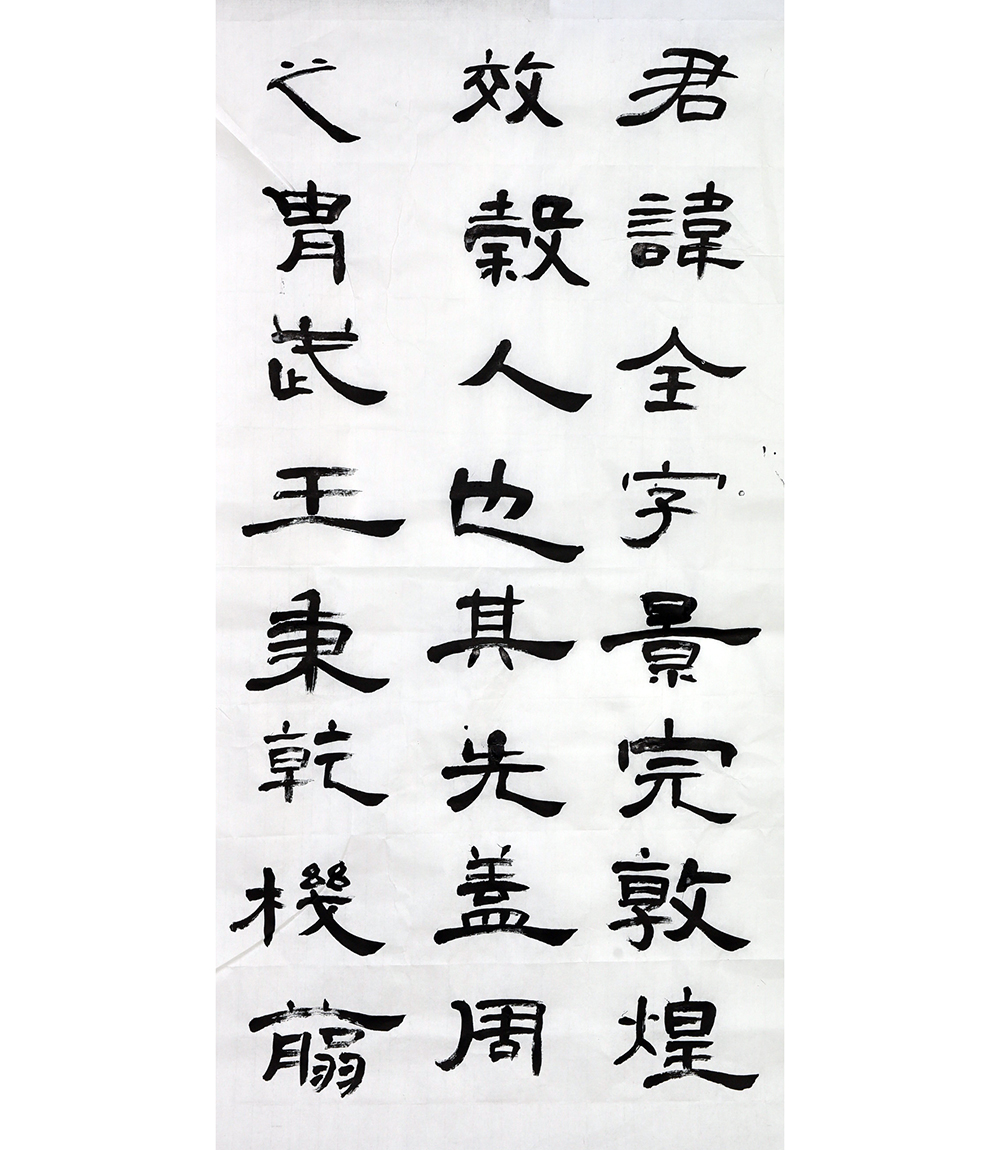 君諱全字景完敦煌
效穀人也其先蓋周
之胄武王秉乾機翦